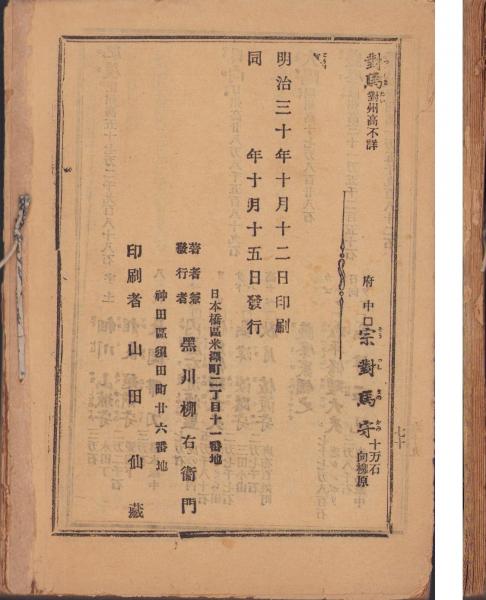 對馬 對州高不詳
府中□宗對馬守 十万石 向柳原
七十
明治三十年十月十二日印刷
同 年十月十五日發行
日本橋區米澤町二丁目十一番地
著者兼發行者 黑川柳右衞門
神田區須田町廿六番地
印刷者 山田仙藏